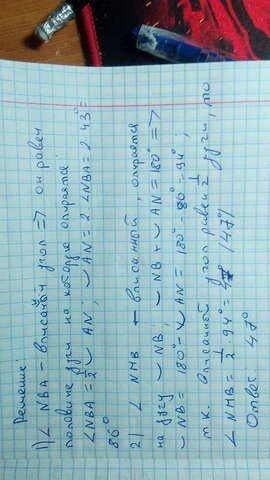 Решение:
1) ∠ NBA – вписаный угол => он равен
половине дуги на которую опирается
∠NBA = 1/2 ◡ AN; ◡ AN = 2 · ∠NBA = 2 · 43° =
86°
2) ∠ NMB – вписанный, опирается
на дугу ◡ NB; ◡ NB + ◡ AN = 180° =>
◡ NB = 180° - ◡ AN = 180° - 86° = 94°;
т.к. вписанный угол равен 1/2 дуги, то
∠ NMB = 1/2 · 94° = 47°
Ответ: 47°